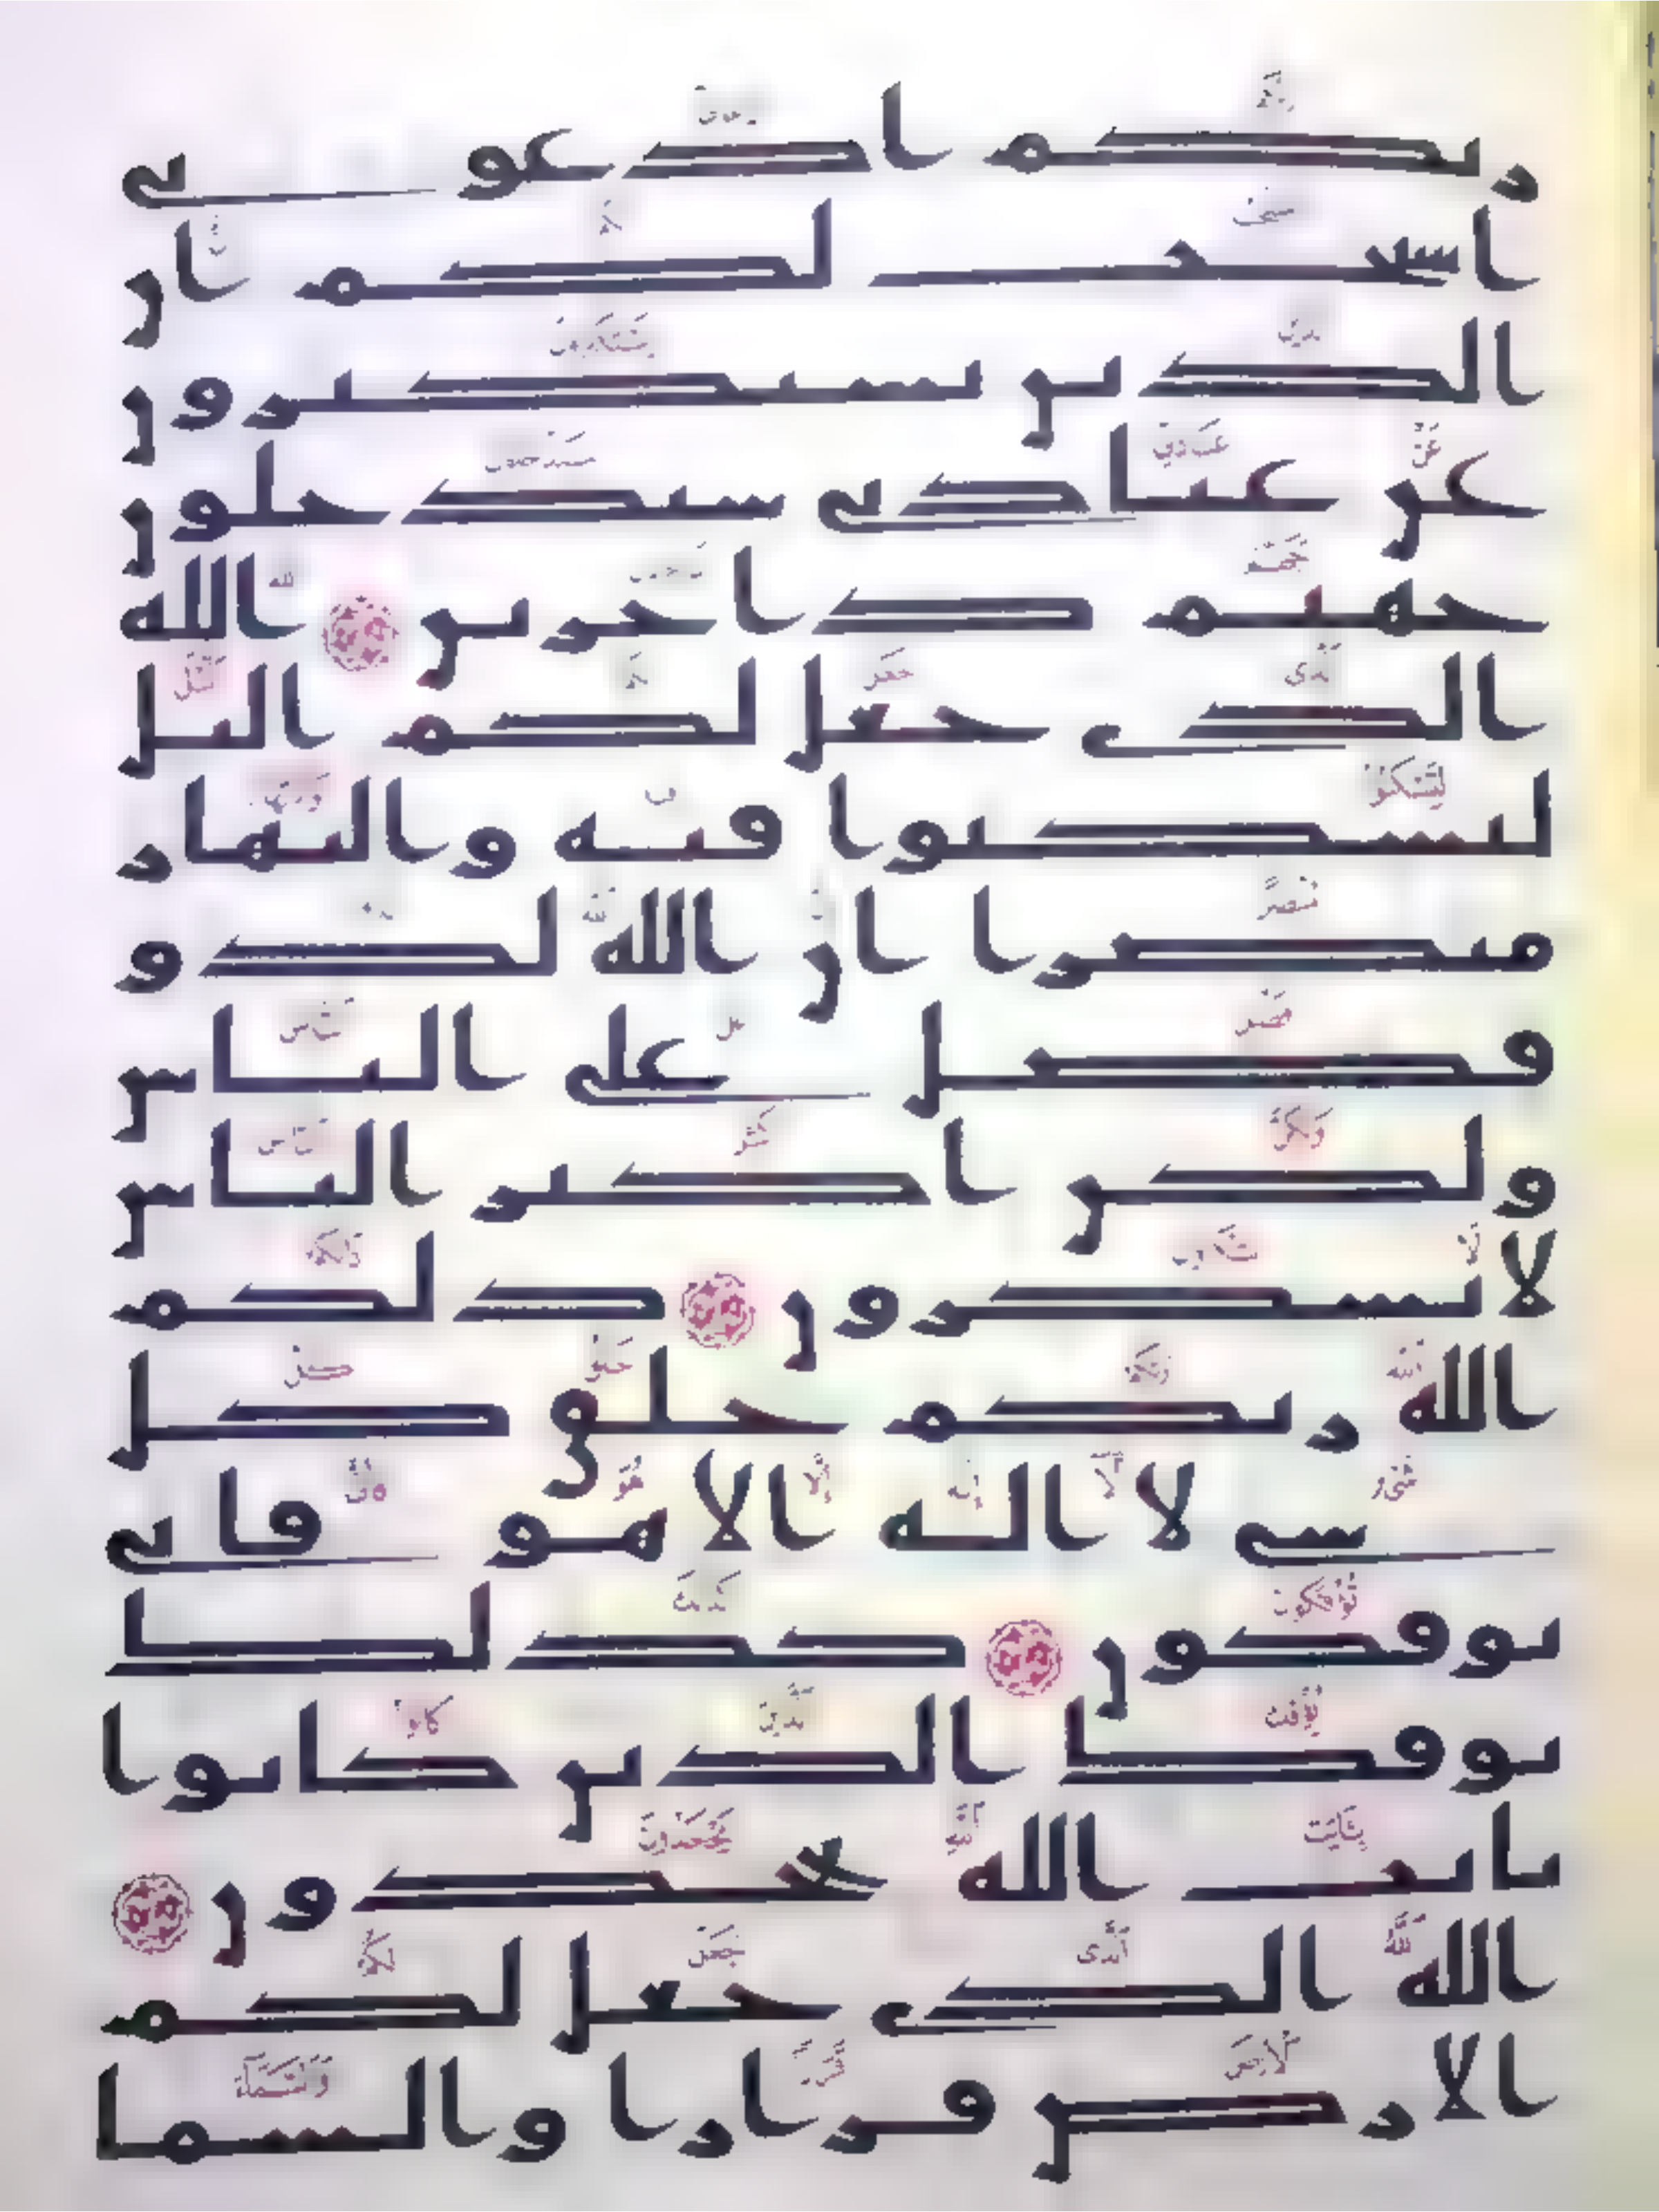 ربكم ادعوني
استجب لكم ان
الذين يستكبرون
عن عبادتي سيدخلون
جهنم داخرين الله
الذي جعل لكم اليل
لتسكنوا فيه والنهار
مبصرا ان الله لذو
فضل على الناس
ولكن اكثر الناس
لا يشكرون ذلكم
الله ربكم خلق كل
شي لا اله الا هو فانى
توفكون كذلك
يوفك الذين كانوا
بايت الله يجحدون
الله الذي جعل لكم
الارض قرارا والسما